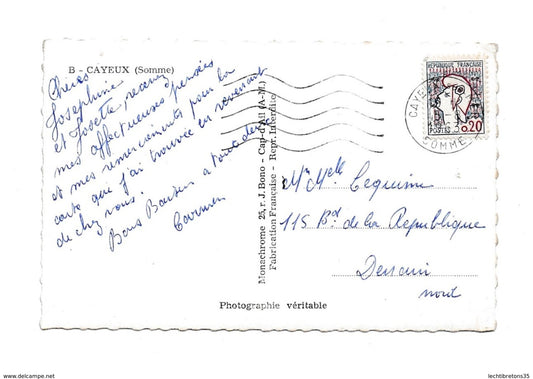 B - CAYEUX (Somme)
Chères
Josephine
et Josette recevez
mes affectueuses pensées
et mes remerciements pour la
carte que j'ai trouvée en revenant
de chez vous.
Bons Baisers a toutes deux
Carmen
Monochrome 25, r. J. Bono - Cap-d'Ail (A.-M.)
Fabrication Française - Repr. Interdite
REPUBLIQUE FRANÇAISE
POSTES 0,20
CAYEUX
SOMME
Mlle Lequime
115 Bd de la Republique
Denain
nord
Photographie véritable
https://www.delcampe.net
lechtibretons35